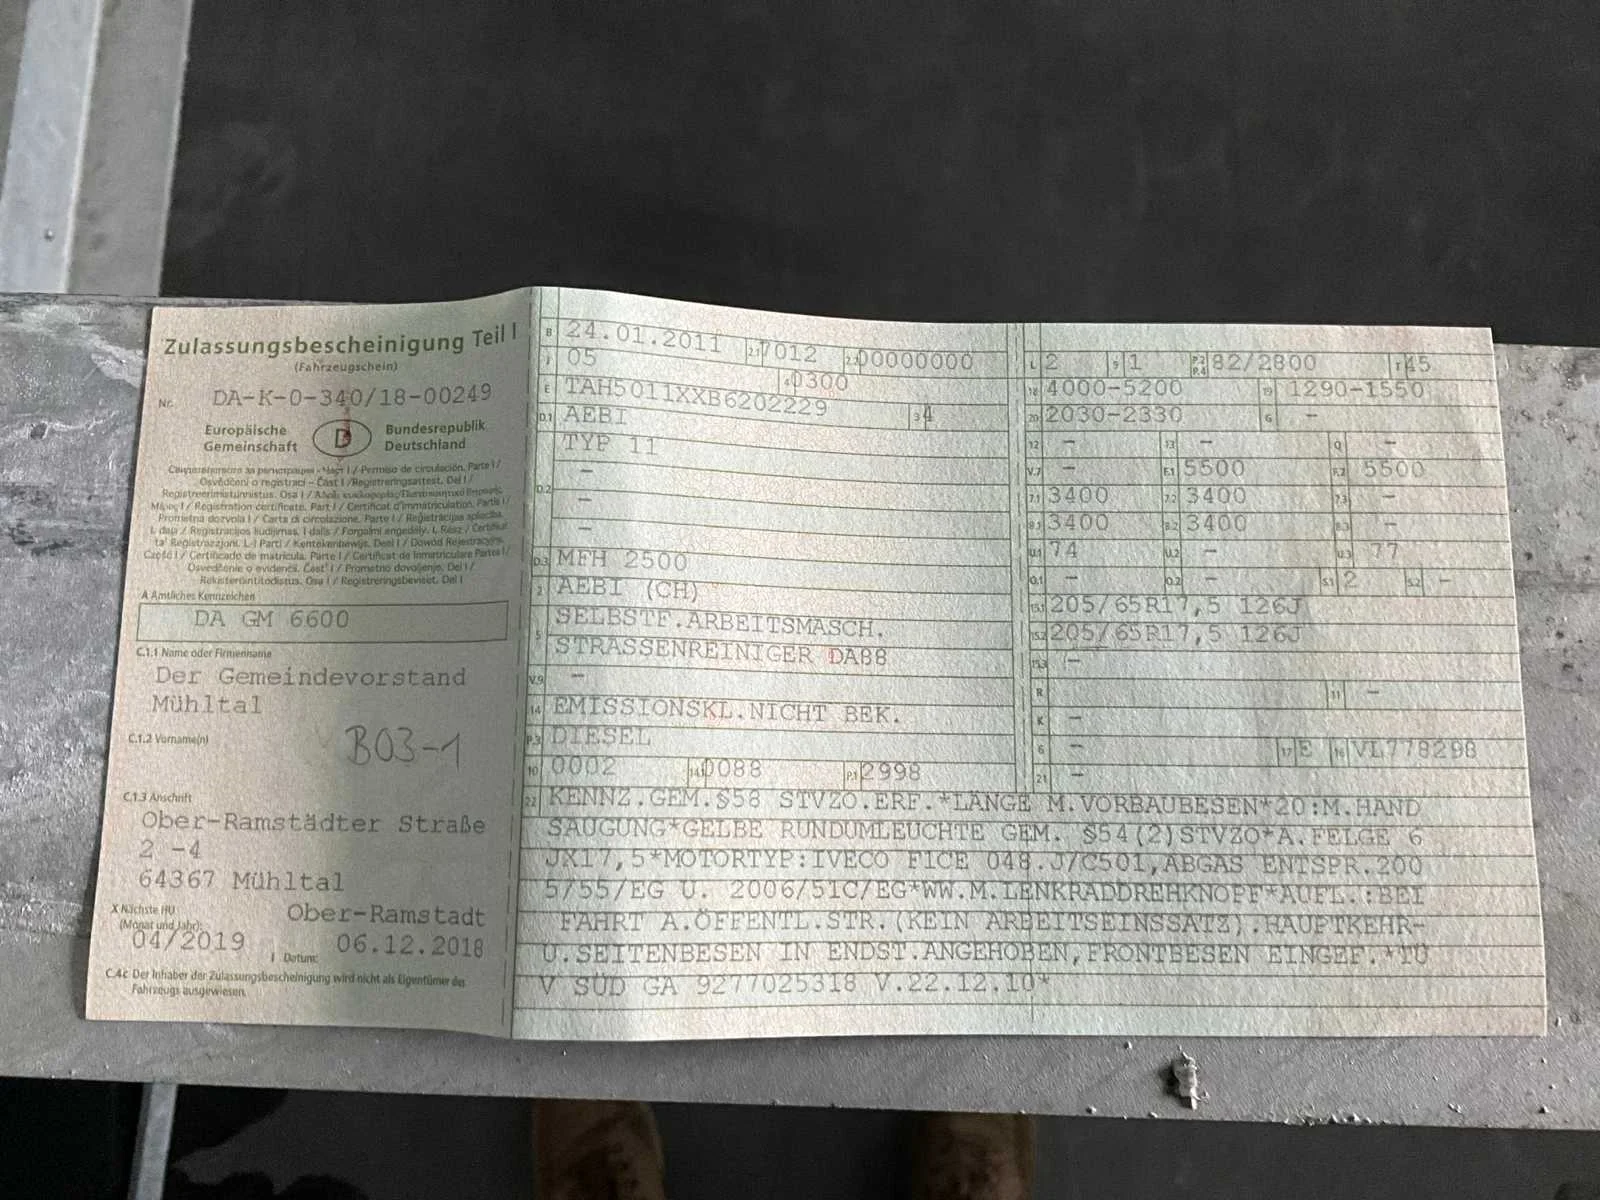 Zulassungsbescheinigung Teil I
(Fahrzeugschein)
Nr. DA-K-0-340/18-00249
Europäische Gemeinschaft
D
Bundesrepublik Deutschland
Permiso de circulación. Parte I /
Osvědčení o registraci - Část I / Registreringsattest. Del I /
Registreerimistunnistus. Osa I /
Registration certificate. Part I / Certificat d'immatriculation. Partie I /
Prometna dozvola I / Carta di circolazione. Parte I /
I dalis / Forgalmi engedély. I. Rész /
Kentekenbewijs. Deel I / Dowód Rejestracyjny.
Część I / Certificado de matrícula. Parte I / Certificat de înmatriculare Partea I /
Osvedčenie o evidencii. Časť I / Prometno dovoljenje. Del I /
Rekisteröintitodistus. Osa I / Registreringsbeviset. Del I
A Amtliches Kennzeichen
DA GM 6600
C.1.1 Name oder Firmenname
Der Gemeindevorstand
Mühltal
C.1.2 Vorname(n)
B03-1
C.1.3 Anschrift
Ober-Ramstädter Straße
2 -4
64367 Mühltal
X Nächste HU (Monat und Jahr): 04/2019
Ober-Ramstadt
I Datum: 06.12.2018
C.4c Der Inhaber der Zulassungsbescheinigung wird nicht als Eigentümer des
Fahrzeugs ausgewiesen.
B 24.01.2011 2.1 7012 2.2 00000000
J 05 4 0300
E TAH5011XXB6202229 3 4
D.1 AEBI
D.2 TYP 11
-
-
-
D.3 MFH 2500
2 AEBI (CH)
5 SELBSTF.ARBEITSMASCH.
STRASSENREINIGER DA88
V.9 -
14 EMISSIONSKL.NICHT BEK.
P.3 DIESEL
10 0002 14.1 0088 P.1 2998
L 2 9 1 P.2 P.4 82/2800 T 45
18 4000-5200 19 1290-1550
20 2030-2330 G -
12 - 13 - Q -
V.7 - F.1 5500 F.2 5500
7.1 3400 7.2 3400 7.3 -
8.1 3400 8.2 3400 8.3 -
U.1 74 U.2 - U.3 77
O.1 - O.2 - S.1 2 S.2 -
15.1 205/65R17,5 126J
15.2 205/65R17,5 126J
15.3 -
R 11 -
K -
6 - 17 E 16 VL778298
21 -
22 KENNZ.GEM.§58 STVZO.ERF.*LÄNGE M.VORBAUBESEN*20:M.HAND
SAUGUNG*GELBE RUNDUMLEUCHTE GEM. §54(2)STVZO*A.FELGE 6
JX17,5*MOTORTYP:IVECO F1CE 048.J/C501,ABGAS ENTSPR.200
5/55/EG U. 2006/51C/EG*WW.M.LENKRADDREHKNOPF*AUFL.:BEI
FAHRT A.ÖFFENTL.STR.(KEIN ARBEITSEINSSATZ).HAUPTKEHR-
U.SEITENBESEN IN ENDST.ANGEHOBEN,FRONTBESEN EINGEF.*TÜ
V SÜD GA 9277025318 V.22.12.10*